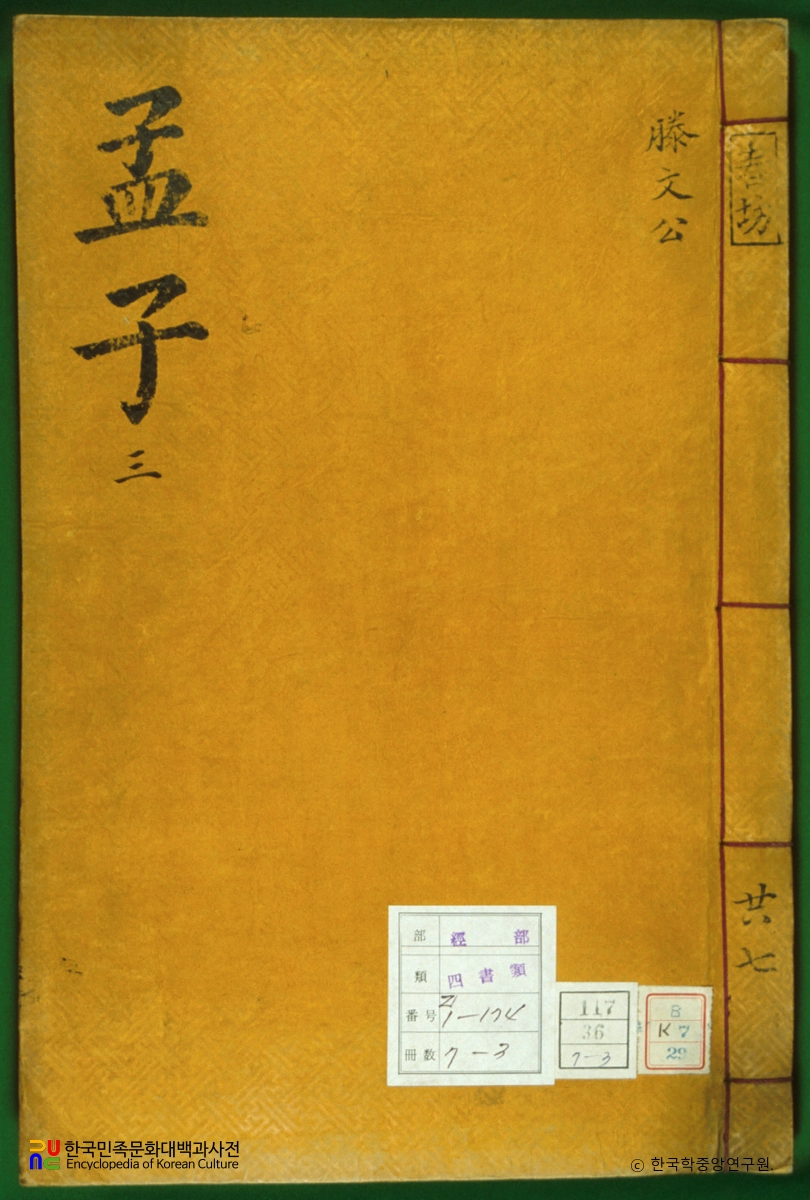 孟子 三
滕文公
春坊
共七
部 經部
類 四書類
番号 1-174
冊数 7-3
117
36
7-3
B
K 7
29
한국민족문화대백과사전
Encyclopedia of Korean Culture
© 한국학중앙연구원.